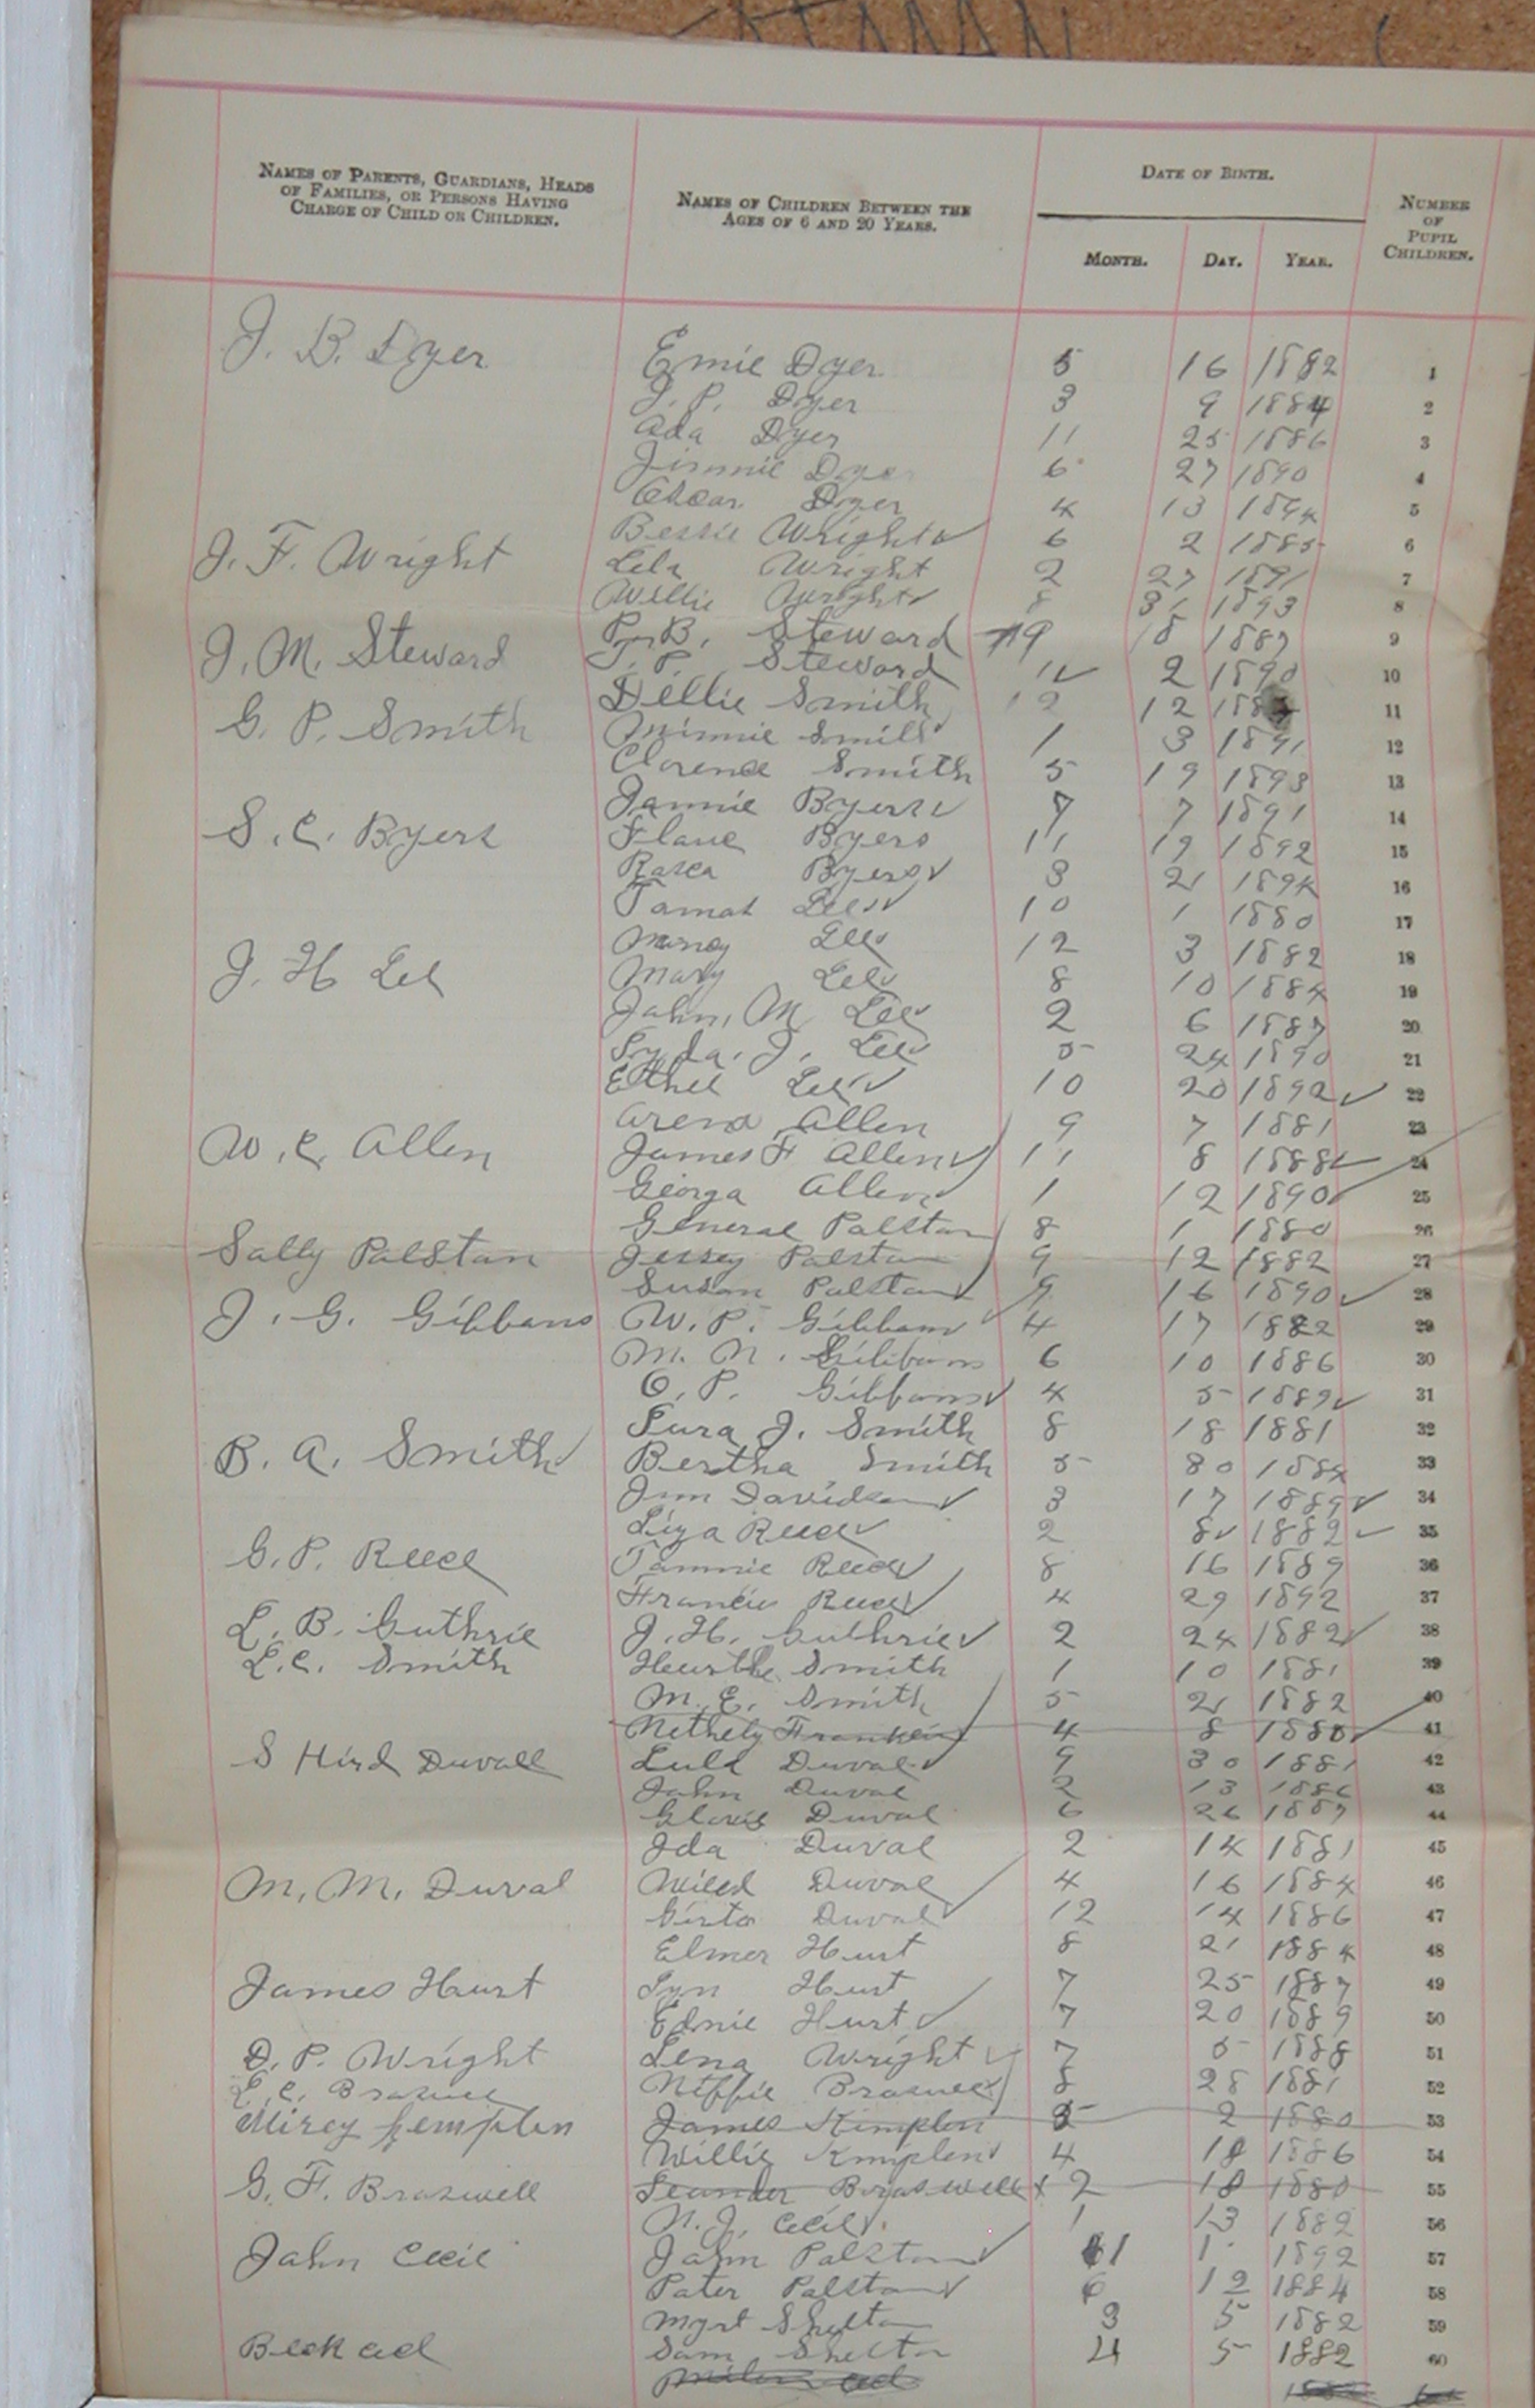 NAMES OF PARENTS, GUARDIANS, HEADS
OF FAMILIES, OR PERSONS HAVING
CHARGE OF CHILD OR CHILDREN.
NAMES OF CHILDREN BETWEEN THE
AGES OF 6 AND 20 YEARS.
DATE OF BIRTH.
MONTH. DAY. YEAR.
NUMBER
OF
PUPIL
CHILDREN.
J. B. Dyer Emie Dyer 5 16 1882 1
J. P. Dyer 3 9 1884 2
Ada Dyer 11 25 1886 3
Jimmie Dyer 6 27 1890 4
Oscar Dyer 4 13 1894 5
Bessie Wright 6 2 1885 6
J. F. Wright Lela Wright 2 27 1891 7
Willie Wright 8 31 1893 8
J. M. Steward B. Steward 9 18 1887 9
P. Steward 2 1890 10
G. P. Smith Dillie Smith 12 12 11
Minnie Smith 1 3 1891 12
Clarence Smith 5 19 1893 13
Jannie Byers 7 7 1891 14
S. C. Byers Flaue Byers 11 19 1892 15
Byers 3 21 1894 16
Tamat Lee 10 1 1880 17
J. H Lee Lee 12 3 1882 18
Mary Lee 8 10 1884 19
John, M Lee 2 6 1887 20
J. Lee 5 24 1890 21
Ethel Lee 10 20 1892 22
Arena Allen 9 7 1881 23
W. C. Allen James F Allen 11 8 1888 24
Georga Allen 1 12 1890 25
General Palstan 8 1 1880 26
Sally Palstan Jessey Palstan 9 12 1882 27
Susan Palstan 9 16 1890 28
J. G. Gibbans W. P. Gibbans 4 17 1882 29
M. N. Gibbans 6 10 1886 30
O. P. Gibbans 4 5 1889 31
Sura J. Smith 8 18 1881 32
B. A. Smith Bertha Smith 5 30 1884 33
Jim Davidson 3 17 1889 34
Liza Reece 2 8 1882 35
G. P. Reece Tammie Reece 8 16 1889 36
Francis Reece 4 29 1892 37
L. B. Guthrie J. H. Guthrie 2 24 1882 38
L. C. Smith Smith 1 10 1881 39
M. E. Smith 5 21 1882 40
Nethely Franklin 4 8 1880 41
S Hird Duvall Lula Duval 9 30 1881 42
John Duval 2 13 1886 43
Duval 6 26 1887 44
Ida Duval 2 14 1881 45
M. M. Duval Duval 4 16 1884 46
Duval 12 14 1886 47
Elmer Hurt 8 21 1884 48
James Hurt Hurt 7 25 1887 49
Ednie Hurt 7 20 1889 50
D. P. Wright Lena Wright 7 5 1888 51
E. C. Braswell Neffie Braswell 8 28 1881 52
Mirey Kemplen James Kimplen 2 1880 53
Willie Kimplen 4 18 1886 54
G. F. Braswell Leander Braswell 2 18 1880 55
N. J. Cecil 1 13 1882 56
John Cecil John Palstan 11 1 1892 57
Pater Palstan 6 12 1884 58
Myrt Shelton 3 5 1882 59
Beck ad Sam Shelton 4 5 1882 60